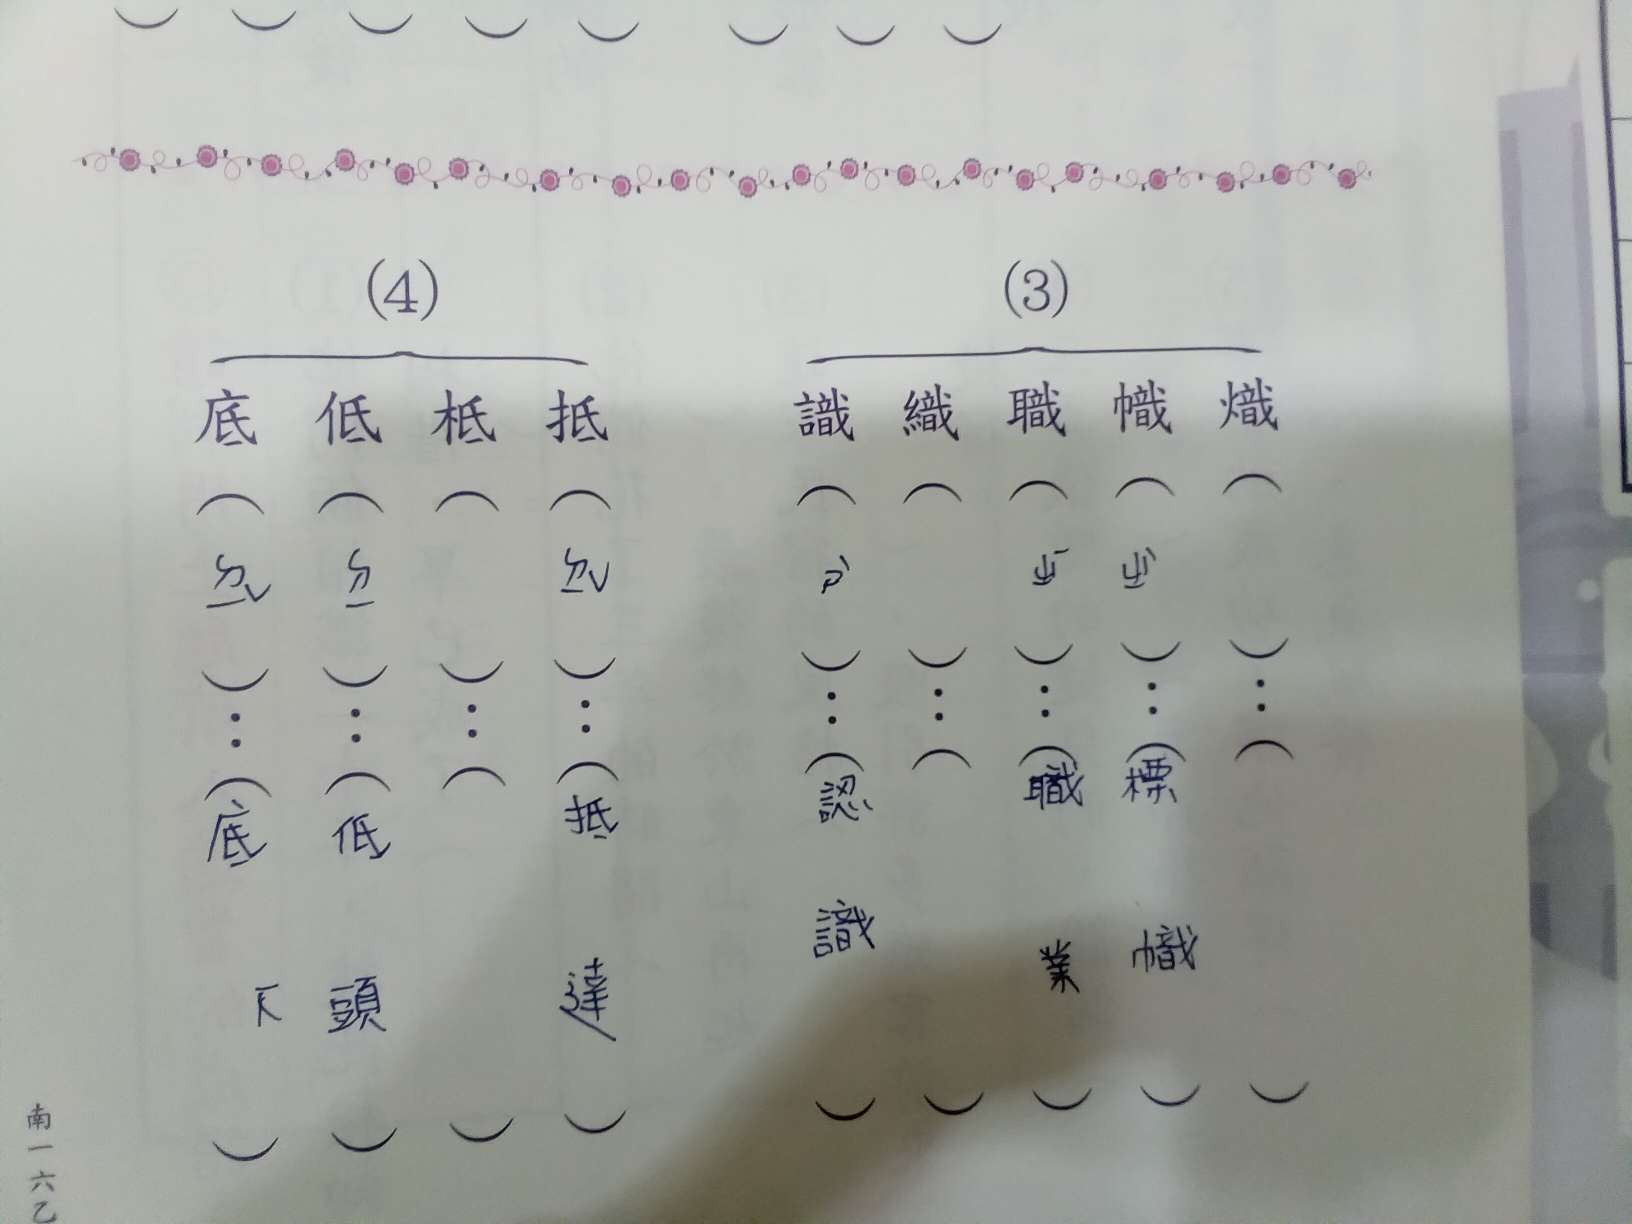 (3)
熾（ ）：（ ）
幟（ㄓˋ）：（標幟）
職（ㄓˊ）：（職業）
織（ ）：（ ）
識（ㄕˋ）：（認識）
(4)
抵（ㄉㄧˇ）：（抵達）
柢（ ）：（ ）
低（ㄉㄧ）：（低頭）
底（ㄉㄧˇ）：（底下）
南一六乙